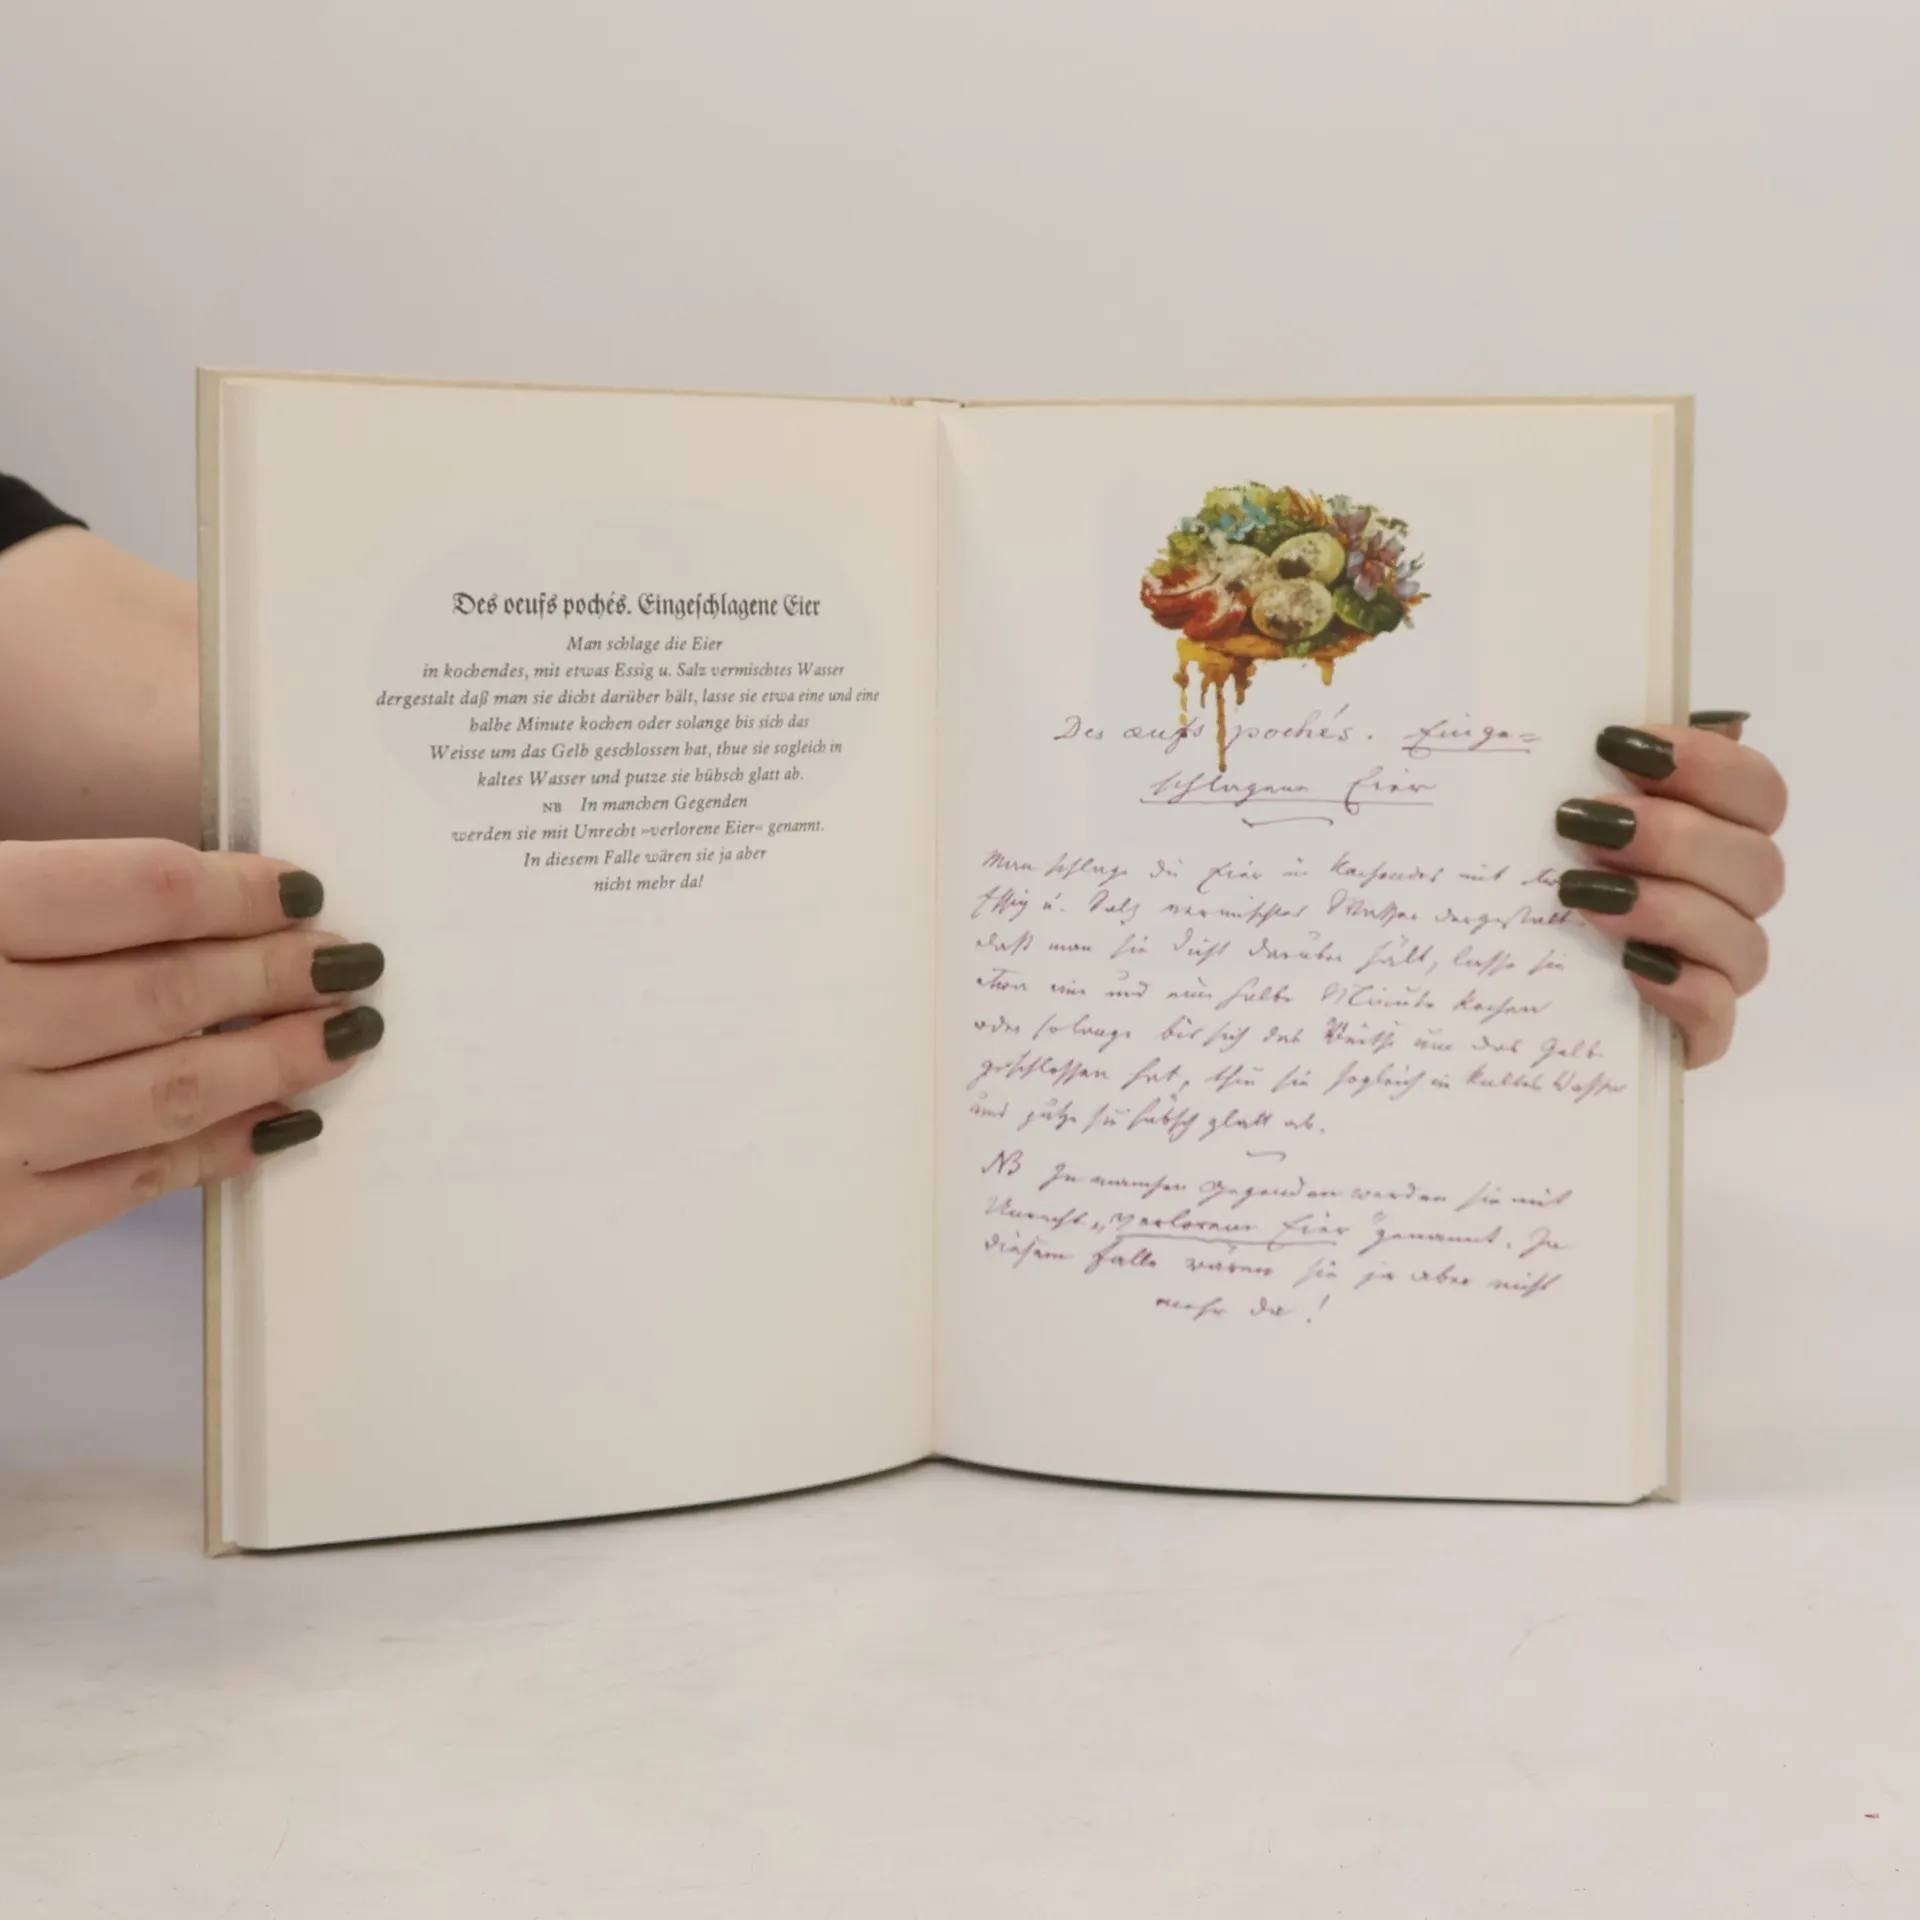 Des oeufs pochés. Eingeschlagene Eier
Man schlage die Eier
in kochendes, mit etwas Essig u. Salz vermischtes Wasser
dergestalt daß man sie dicht darüber hält, lasse sie etwa eine und eine
halbe Minute kochen oder solange bis sich das
Weisse um das Gelb geschlossen hat, thue sie sogleich in
kaltes Wasser und putze sie hübsch glatt ab.
NB In manchen Gegenden
werden sie mit Unrecht »verlorene Eier« genannt.
In diesem Falle wären sie ja aber
nicht mehr da!
Des œufs pochés. Einge=
schlagene Eier
Man schlage die Eier in kochendes mit
Essig u. Salz vermischtes Wasser dergestalt
daß man sie dicht darüber hält, lasse sie
etwa eine und eine halbe Minute kochen
oder solange bis sich das Weisse um das Gelb
geschlossen hat, thue sie sogleich in kaltes Wasser
und putze sie hübsch glatt ab.
NB In manchen Gegenden werden sie mit
Unrecht „verlorene Eier" genannt. In
diesem Falle wären sie ja aber nicht
mehr da!